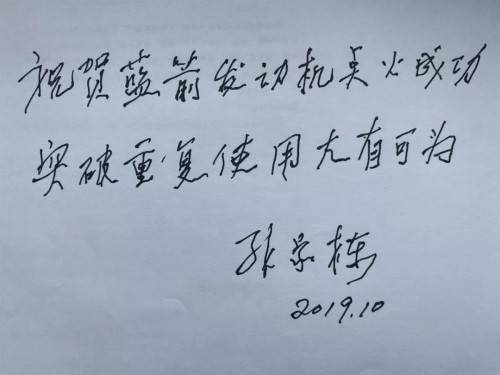 祝贺藍箭发动机点火成功
突破重复使用大有可为
孙家栋
2019.10